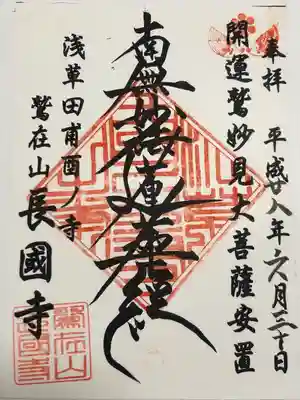 奉拝 平成廿八年六月三十日
開運鷲妙見大菩薩安置
南無妙法蓮華経
浅草田甫酉ノ寺
鷲在山長國寺
鷲在山長國寺